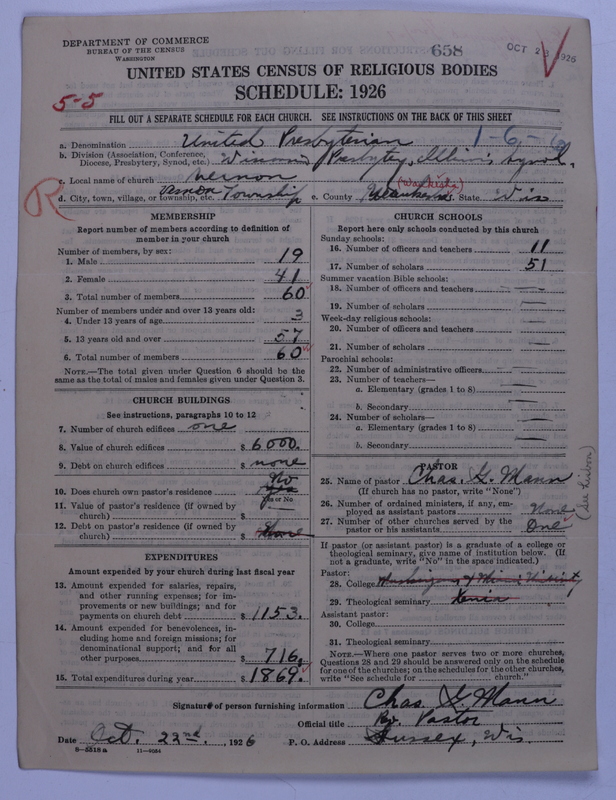 DEPARTMENT OF COMMERCE
BUREAU OF THE CENSUS
WASHINGTON
658
OCT 23 1926
UNITED STATES CENSUS OF RELIGIOUS BODIES
SCHEDULE: 1926
5-5
FILL OUT A SEPARATE SCHEDULE FOR EACH CHURCH. SEE INSTRUCTIONS ON THE BACK OF THIS SHEET
a. Denomination United Presbyterian 1-6-6
b. Division (Association, Conference, Diocese, Presbytery, Synod, etc.) Wisconsin Presbytery, Illinois Synod.
c. Local name of church Vernon
R
d. City, town, village, or township, etc. Vernon Township e. County Waukesha (Waukesha) f. State Wis
MEMBERSHIP
Report number of members according to definition of member in your church
Number of members, by sex:
1. Male 19
2. Female 41
3. Total number of members 60
Number of members under and over 13 years old:
4. Under 13 years of age 3
5. 13 years old and over 57
6. Total number of members 60
NOTE.—The total given under Question 6 should be the same as the total of males and females given under Question 3.
CHURCH BUILDINGS
See instructions, paragraphs 10 to 12
7. Number of church edifices one
8. Value of church edifices $ 6000.
9. Debt on church edifices $ none
10. Does church own pastor's residence No
Yes or No
11. Value of pastor's residence (if owned by church) $
12. Debt on pastor's residence (if owned by church) $ None
EXPENDITURES
Amount expended by your church during last fiscal year
13. Amount expended for salaries, repairs, and other running expenses; for improvements or new buildings; and for payments on church debt $ 1153.
14. Amount expended for benevolences, including home and foreign missions; for denominational support; and for all other purposes $ 716.
15. Total expenditures during year $ 1869.
CHURCH SCHOOLS
Report here only schools conducted by this church
Sunday schools:
16. Number of officers and teachers 11
17. Number of scholars 51
Summer vacation Bible schools:
18. Number of officers and teachers —
19. Number of scholars —
Week-day religious schools:
20. Number of officers and teachers —
21. Number of scholars —
Parochial schools:
22. Number of administrative officers —
23. Number of teachers—
a. Elementary (grades 1 to 8) —
b. Secondary —
24. Number of scholars—
a. Elementary (grades 1 to 8) —
b. Secondary —
PASTOR
25. Name of pastor Chas. G. Mann
(If church has no pastor, write "None")
26. Number of ordained ministers, if any, employed as assistant pastors None
27. Number of other churches served by the pastor or his assistants One
(See Lisbon)
If pastor (or assistant pastor) is a graduate of a college or theological seminary, give name of institution below. (If not a graduate, write "No" in the space indicated.)
Pastor:
28. College Muskingum & Miami University
29. Theological seminary Xenia
Assistant pastor:
30. College
31. Theological seminary
NOTE.—Where one pastor serves two or more churches, Questions 28 and 29 should be answered only on the schedule for one of the churches; on the schedules for the other churches, write "See schedule for church."
Signature of person furnishing information Chas. G. Mann
Official title Rev. Pastor
Date Oct. 22nd., 1926 P. O. Address Sussex, Wis.
8-5518 a 11-9084